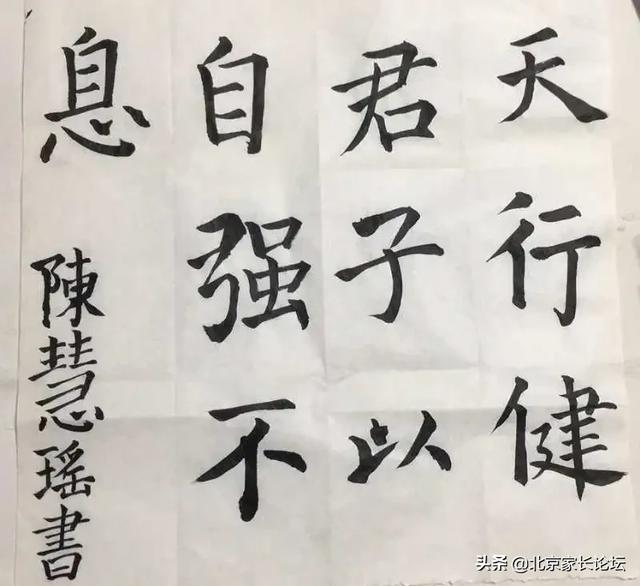 天行健
君子以
自强不
息
陳慧瑶書
头条 @北京家长论坛